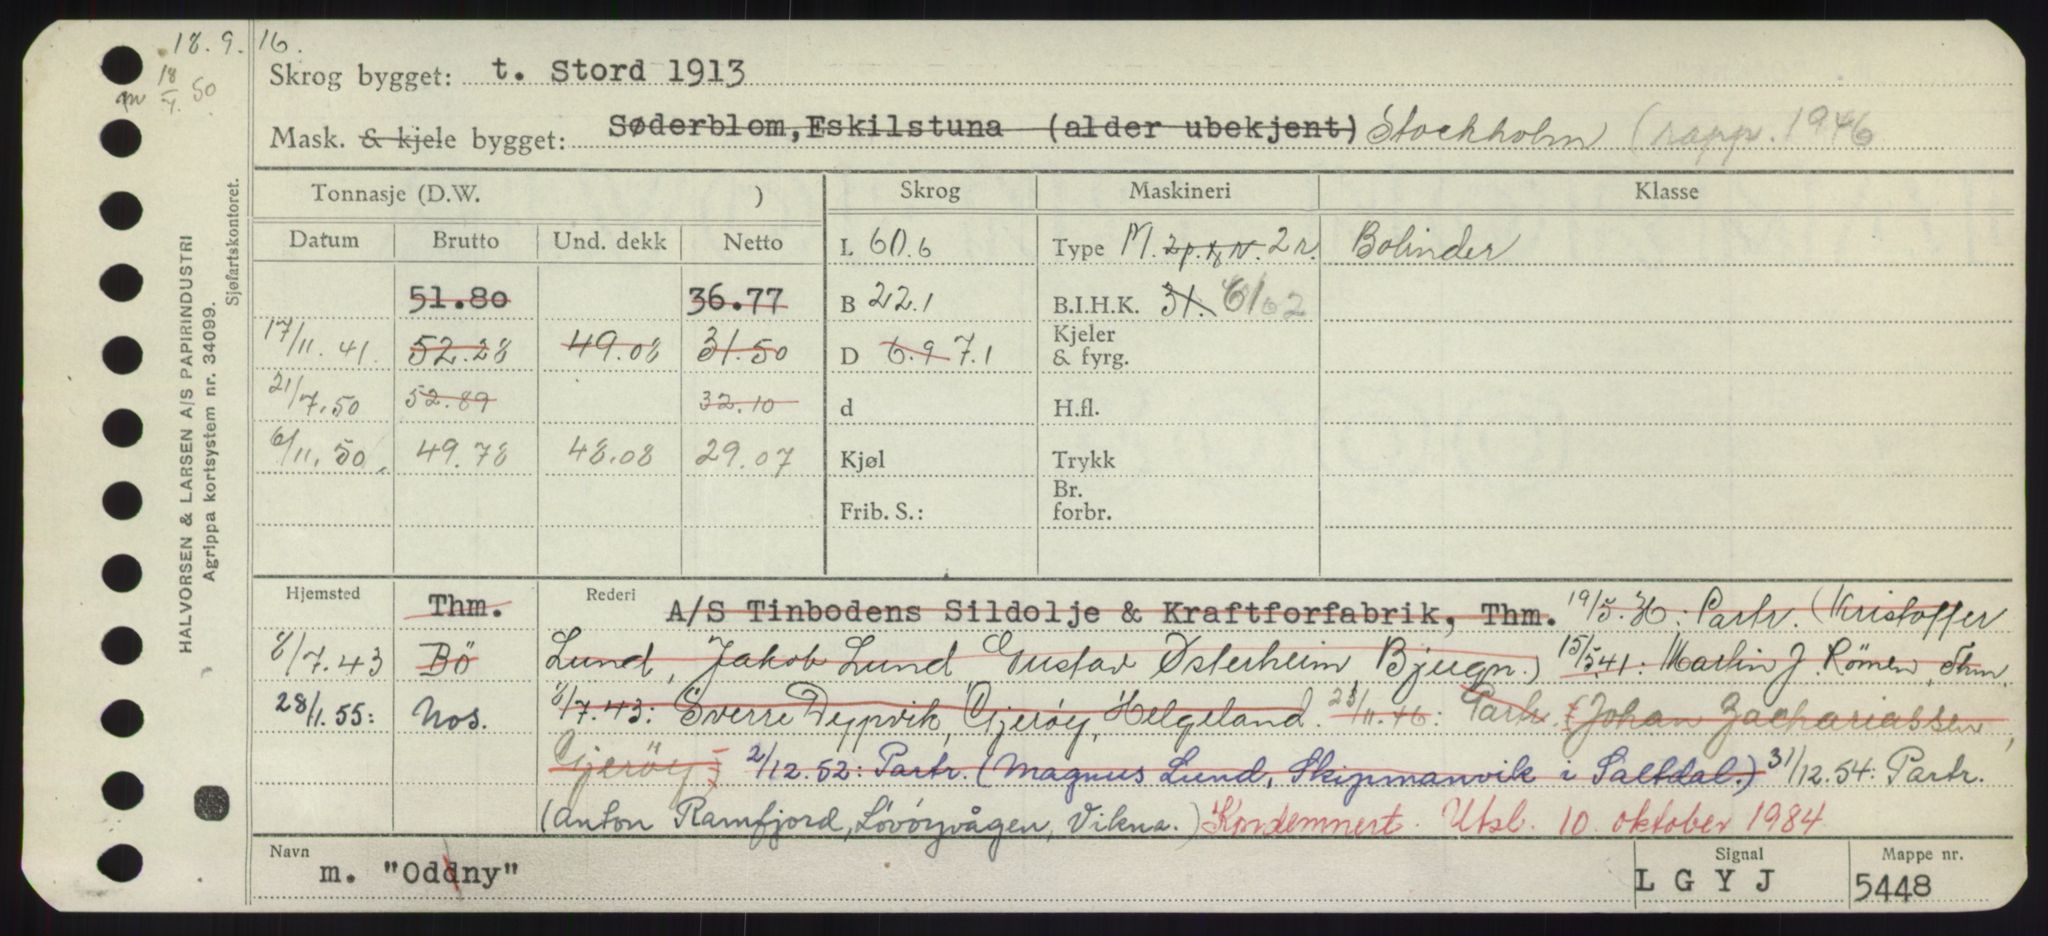 18. 9. 16.
18/7. 50
Skrog bygget: t. Stord 1913
Mask. & kjele bygget: Søderblom, Eskilstuna (alder ubekjent) Stockholm (rapp. 1946
Tonnasje (D.W. ) Skrog Maskineri Klasse
Datum Brutto Und. dekk Netto L 60.6 Type M. 2 r. Bolinder
51.80 36.77 B 22.1 B.I.H.K. 31.
17/11. 41. 52.28 49.08 31.50 D 6.9 7.1 Kjeler & fyrg.
21/7. 50 52.89 32.10 d H.fl.
6/11. 50. 49.78 48.08 29.07 Kjøl Trykk
Frib. S.: Br. forbr.
Hjemsted Thm. Rederi A/S Tinbodens Sildolje & Kraftforfabrik, Thm. 19/5. 36: Partr. (Kristoffer
8/7. 43 Bö Lund, Jakob Lund Gustav Østerheim, Bjugn.) 15/5.41: Martin J. Römen, Thm.
28/1. 55: Nos. 8/7.43: Sverre Dypvik, Gjerøy, Helgeland. 23/11.46: Partr. (Johan Zachariassen,
Gjerøy) 2/12.52: Partr. (Magnus Lund, Skipmanvik i Saltdal.) 31/12.54: Partr.
(Anton Ramfjord, Lövöyvågen, Vikna.) Kondemnert. Utsl. 10. oktober 1984
Navn m. "Oddny" Signal L G Y J Mappe nr. 5448
HALVORSEN & LARSEN A/S PAPIRINDUSTRI
Agrippa kortsystem nr. 34099.
Sjøfartskontoret.